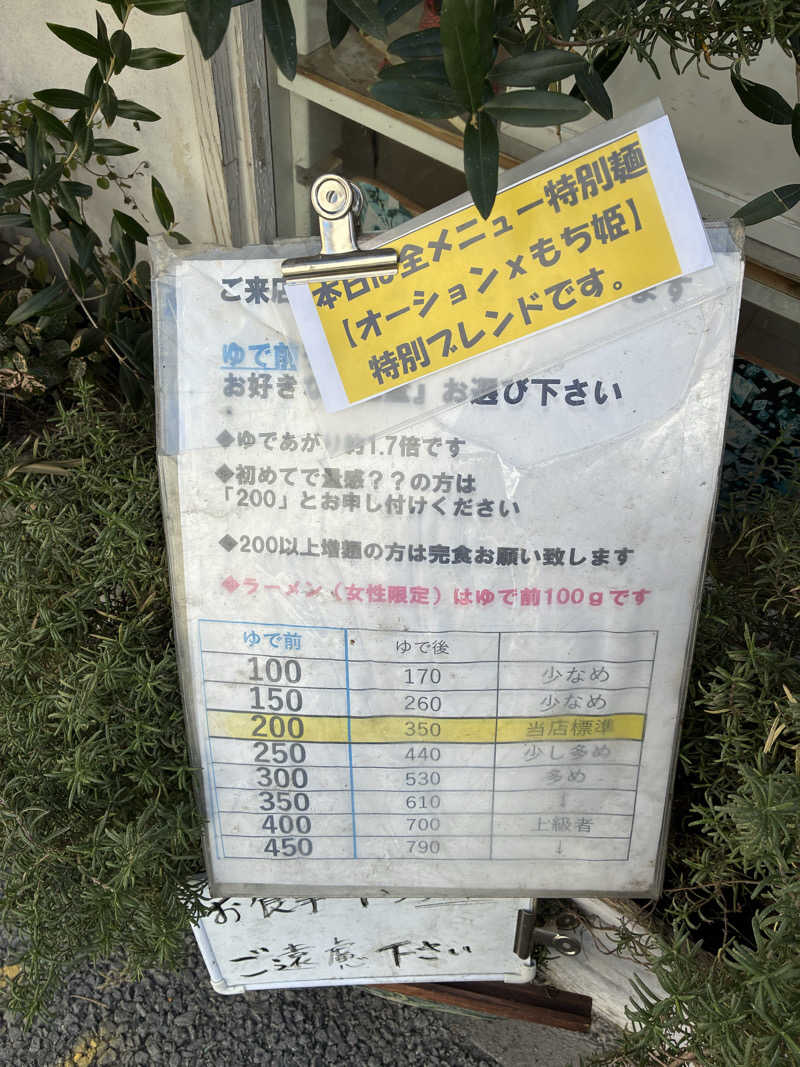 本日は全メニュー特別麺
【オーションxもち姫】
特別ブレンドです。
ご来店
ます
ゆで前
お好き
」お選び下さい
◆ゆであがり約1.7倍です
◆初めてで量感??の方は
「200」とお申し付けください
◆200以上増麺の方は完食お願い致します
◆ラーメン(女性限定)はゆで前100gです
ゆで前 ゆで後
100 170 少なめ
150 260 少なめ
200 350 当店標準
250 440 少し多め
300 530 多め
350 610 ↓
400 700 上級者
450 790 ↓
ご遠慮下さい